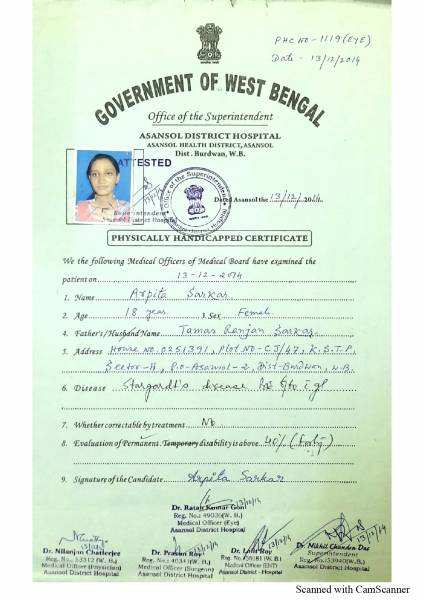 PHC NO - 1119 (EYE)
Date - 13/12/2014
GOVERNMENT OF WEST BENGAL
Office of the Superintendent
ASANSOL DISTRICT HOSPITAL
ASANSOL HEALTH DISTRICT, ASANSOL
Dist. Burdwan, W.B.
ATTESTED
Superintendent
Asansol District Hospital
Office of the Superintendent
Dated Asansol the 13/12/2014.
PHYSICALLY HANDICAPPED CERTIFICATE
We the following Medical Officers of Medical Board have examined the
patient on 13-12-2014
1. Name Arpita Sarkar.
2. Age 18 year. 3. Sex Female.
4. Father's / Husband Name Tamas Renjan Sarkar.
5. Address House No. 0251391, Plot No- CJ/47, K.S.T.P,
Sector-II, P.O-Asansol-2, Dist-Burdwan, W.B.
6. Disease Stargardt's disease
7. Whether correctable by treatment No
8. Evaluation of Permanent. Temporary disability is above 40%
9. Signature of the Candidate Arpita Sarkar
Dr. Ratan Kumar Goni
Reg. No.: 49036(W. B.)
Medical Officer (Eye)
Asansol District Hospital
Dr. Nilanjan Chatterjee
Reg. No.: 53312 (W. B.)
Medical Officer (Physician)
Asansol District Hospital
Dr. Roy
Medical Officer (Surgeon)
Asansol District Hospital
Dr. Roy
Medical Officer (ENT)
Asansol District - Hospital
Dr. Nikhil Chandra Das
Superintendent
Reg. No.:33940(W. B.)
Asansol District Hospital
Scanned with CamScanner